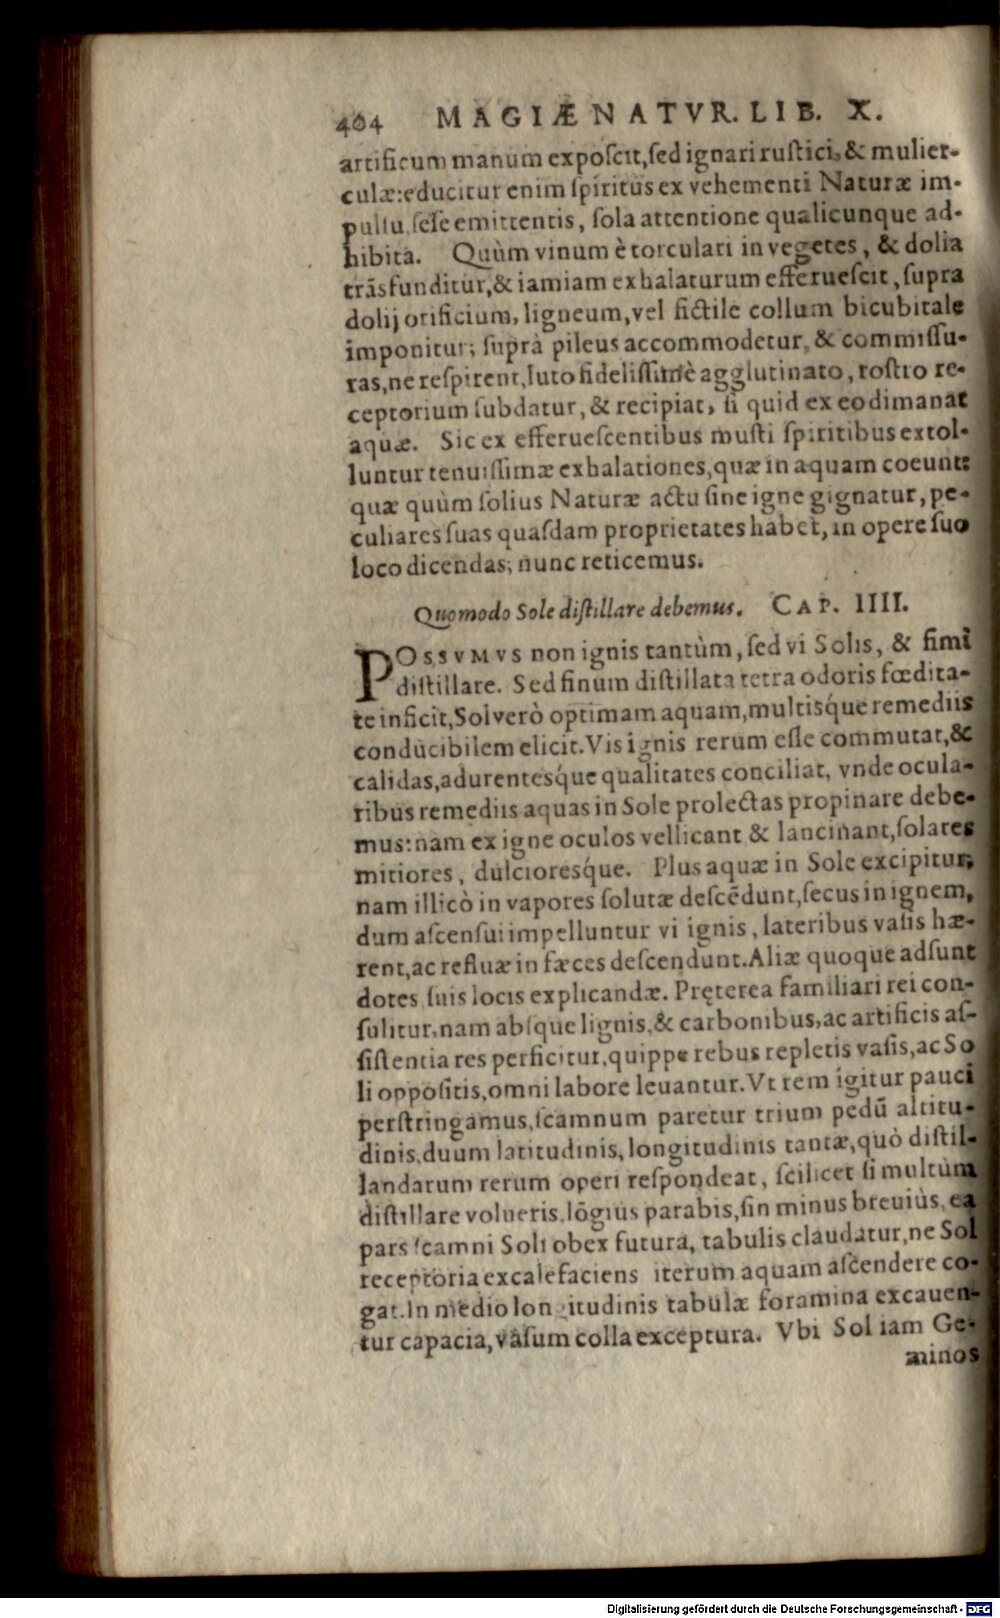 404 MAGIÆ NATVR. LIB. X.
artificum manum exposcit, sed ignari rustici, & mulier-
culæ: educitur enim spiritus ex vehementi Naturæ im-
pulsu, sese emittentis, sola attentione qualicunque ad-
hibita. Quùm vinum è torculari in vegetes, & dolia
trãsfunditur, & iamiam exhalaturum efferuescit, supra
dolij orificium, ligneum, vel fictile collum bicubitale
imponitur; suprà pileus accommodetur, & commissu-
ras, ne respirent, luto fidelissimè agglutinato, rostro re-
ceptorium subdatur, & recipiat, si quid ex eo dimanat
aquæ. Sic ex efferuescentibus musti spiritibus extol-
luntur tenuissimæ exhalationes, quæ in aquam coeunt:
quæ quùm solius Naturæ actu sine igne gignatur, pe-
culiares suas quasdam proprietates habet, in opere suo
loco dicendas; nunc reticemus.
Quomodo Sole distillare debemus. CAP. IIII.
POSSVMVS non ignis tantùm, sed vi Solis, & fimi
distillare. Sed finum distillata tetra odoris fœdita-
te inficit, Sol verò optimam aquam, multisq́ue remediis
conducibilem elicit. Vis ignis rerum esse commutat, &
calidas, adurentesq́ue qualitates conciliat, vnde ocula-
ribus remediis aquas in Sole prolectas propinare debe-
mus: nam ex igne oculos vellicant & lancinant, solares
mitiores, dulcioresq́ue. Plus aquæ in Sole excipitur,
nam illicò in vapores solutæ descẽdunt, secus in ignem,
dum ascensui impelluntur vi ignis, lateribus vasis hæ-
rent, ac refluæ in fæces descendunt. Aliæ quoque adsunt
dotes suis locis explicandæ. Pręterea familiari rei con-
sulitur, nam absque lignis, & carbonibus, ac artificis as-
sistentia res perficitur, quippe rebus repletis vasis, ac So
li oppositis, omni labore leuantur. Vt rem igitur pauci
perstringamus, scamnum paretur trium pedũ altitu-
dinis, duum latitudinis, longitudinis tantæ, quò distil-
landarum rerum operi respondeat, scilicet si multùm
distillare volueris, lõgius parabis, sin minus breuiùs, ea
pars scamni Soli obex futura, tabulis claudatur, ne Sol
receptoria excalefaciens iterum aquam ascendere co-
gat. In medio longitudinis tabulæ foramina excauen-
tur capacia, vasum colla exceptura. Vbi Sol iam Ge-
minos
Digitalisierung gefördert durch die Deutsche Forschungsgemeinschaft - DFG